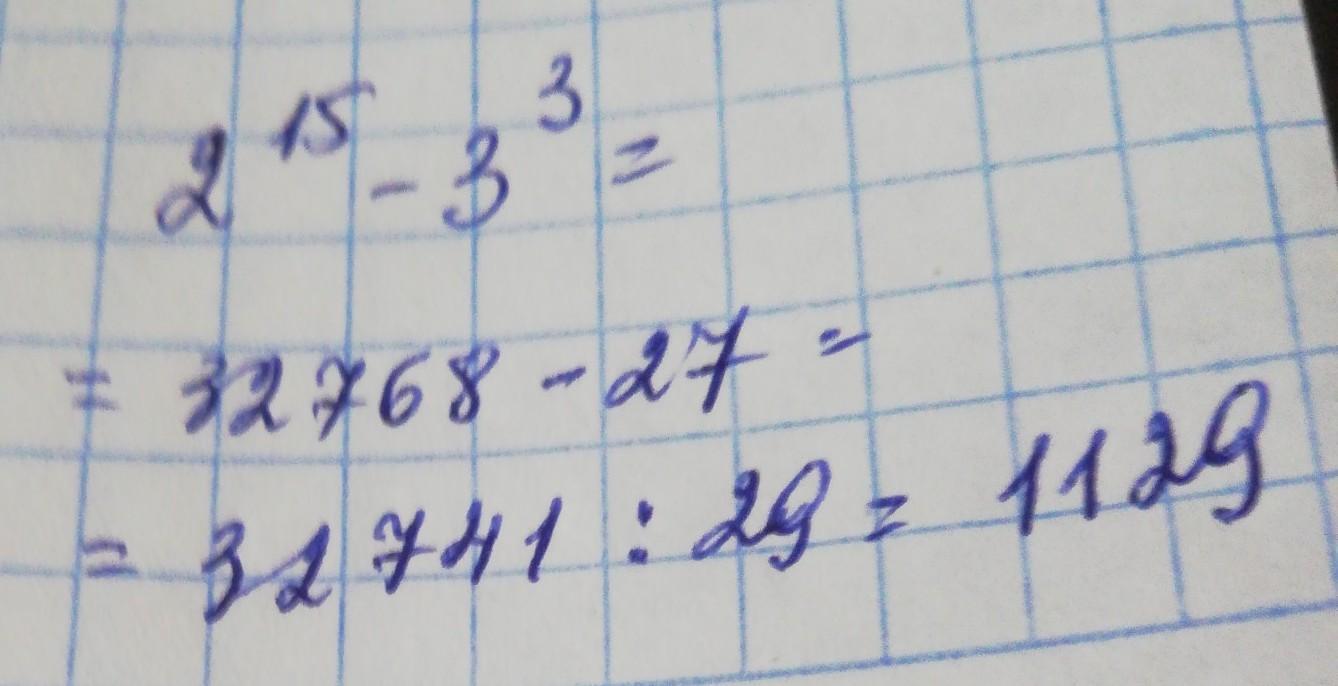 2¹⁵ - 3³ =
= 32768 - 27 =
= 32741 : 29 = 1129